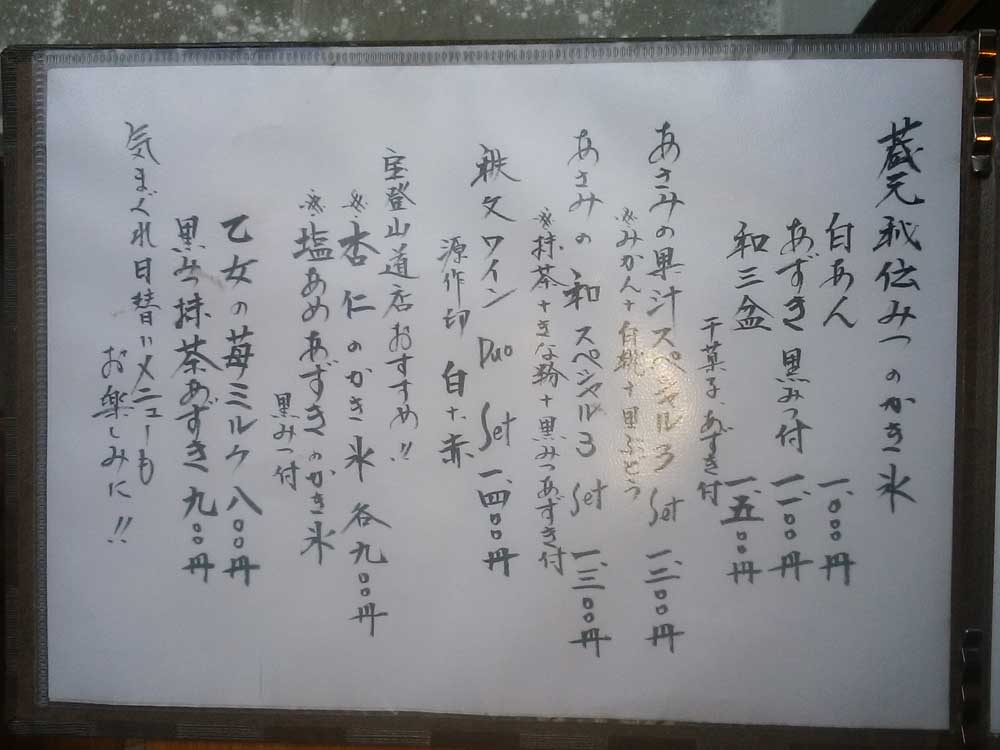 蔵元秘伝みつのかき氷
白あん 一、〇〇〇円
あずき 黒みつ付 一、一〇〇円
和三盆 一、五〇〇円
干菓子、あずき付
あさみの果汁スペシャル3 Set 一、三〇〇円
※みかん+白桃+黒ぶどう
あさみの和スペシャル3 Set 一、三〇〇円
※抹茶+きな粉+黒みつあずき付
秩父ワイン Duo Set 一、四〇〇円
源作印 白+赤
宝登山道店おすすめ!!
※杏仁のかき氷 各九〇〇円
※塩あめあずきのかき氷
黒みつ付
乙女の苺ミルク 八〇〇円
黒みつ抹茶あずき 九〇〇円
気まぐれ日替りメニューも
お楽しみに!!